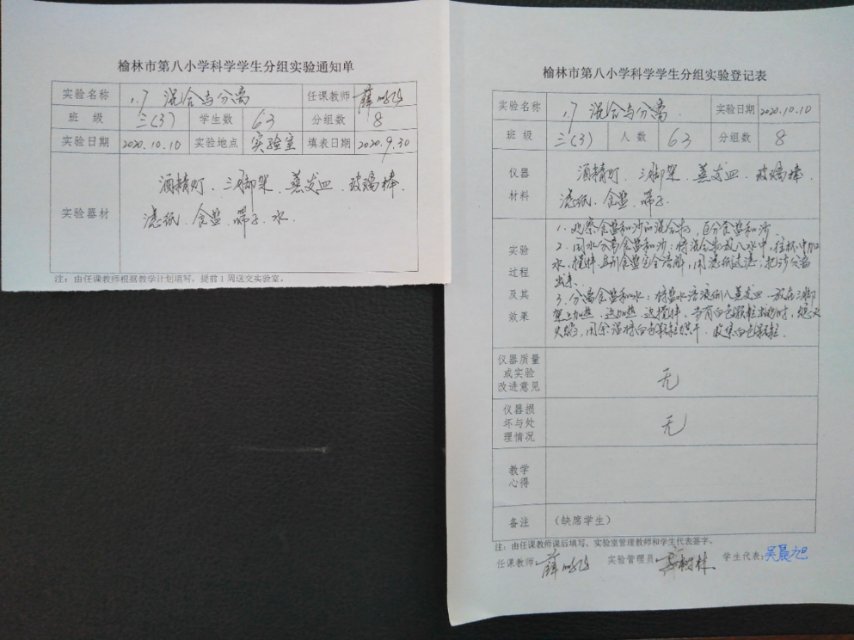 榆林市第八小学科学学生分组实验通知单
实验名称 1.7 混合与分离 任课教师 薛
班 级 三(3) 学生数 63 分组数 8
实验日期 2020.10.10 实验地点 实验室 填表日期 2020.9.30
实验器材
酒精灯、三脚架、蒸发皿、玻璃棒、
滤纸、食盐、筛子、水
注:由任课教师根据教学计划填写,提前1周送交实验室。
榆林市第八小学科学学生分组实验登记表
实验名称 1.7 混合与分离 实验日期 2020.10.10
班 级 三(3) 人 数 63 分组数 8
仪器
材料
酒精灯、三脚架、蒸发皿、玻璃棒、
滤纸、食盐、筛子
实验
过程
及其
效果
1. 观察食盐和沙的混合物,区分食盐和沙
2. 用水分离食盐和沙:将混合物放入水中,往杯中加
水,搅拌,直到食盐完全溶解,用滤纸过滤,把沙分离
出来。
3. 分离食盐和水:将盐水溶液倒入蒸发皿 放在三脚
架上加热,边加热,边搅拌,当有白色颗粒出现时,熄灭
火焰,用余温将白色颗粒烘干,收集白色颗粒。
仪器质量
或实验
改进意见
无
仪器损
坏与处
理情况
无
教学
心得
备注 (缺席学生)
注:由任课教师课后填写、实验室管理教师和学生代表签字。
任课教师: 薛 实验管理员: 学生代表: 吴晨旭